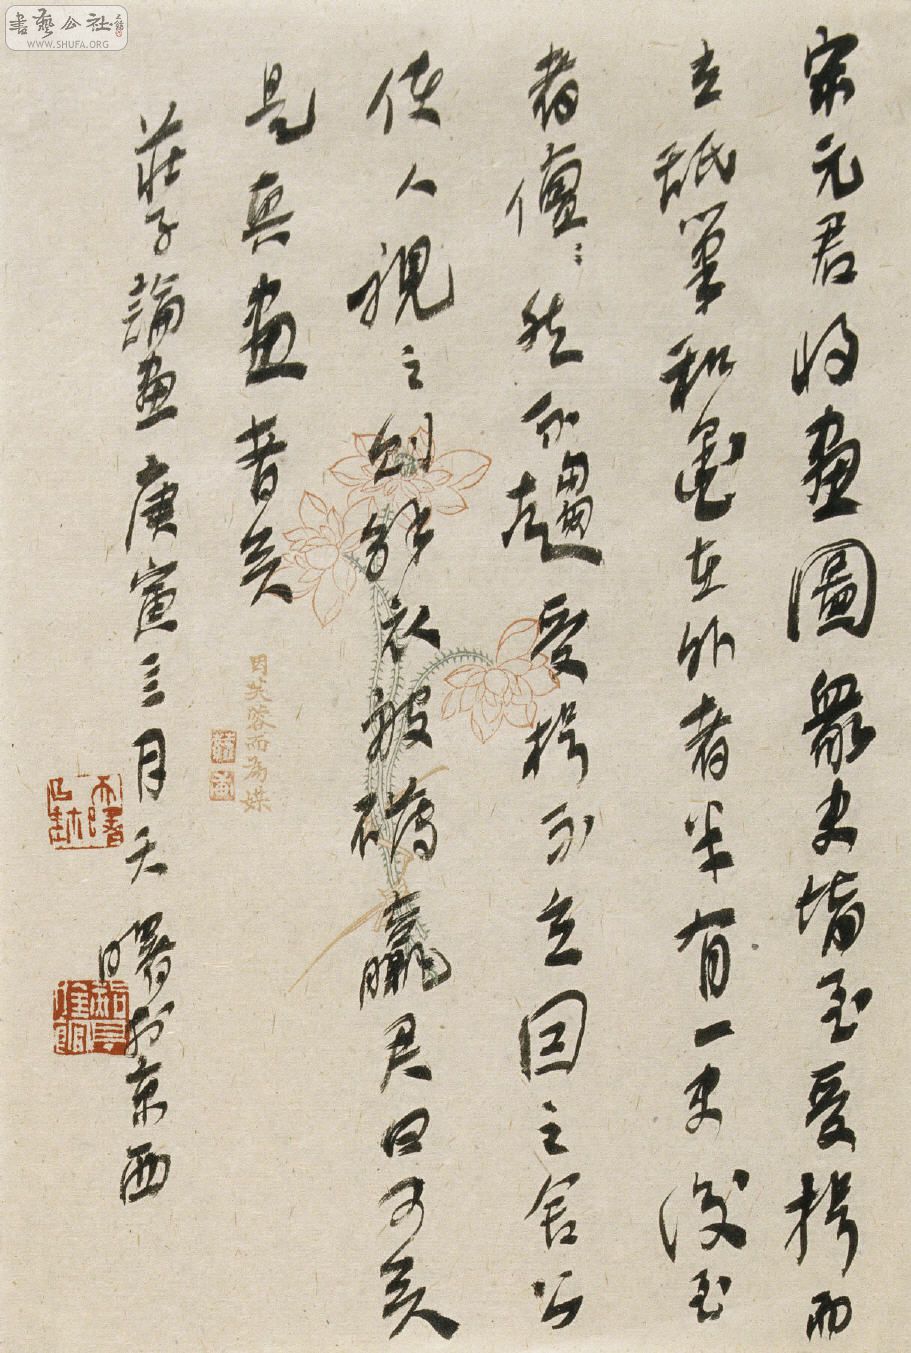 書藝公社
WWW.SHUFA.ORG
宋元君將畫圖眾史皆至受揖而
立舐筆和墨在外者半有一史後至
者儃〻然不趨受揖不立因之舍公
使人視之則解衣般礴臝君曰可矣
是真畫者矣
莊子論畫庚寅三月天曙於京西
因芙蓉而為媒